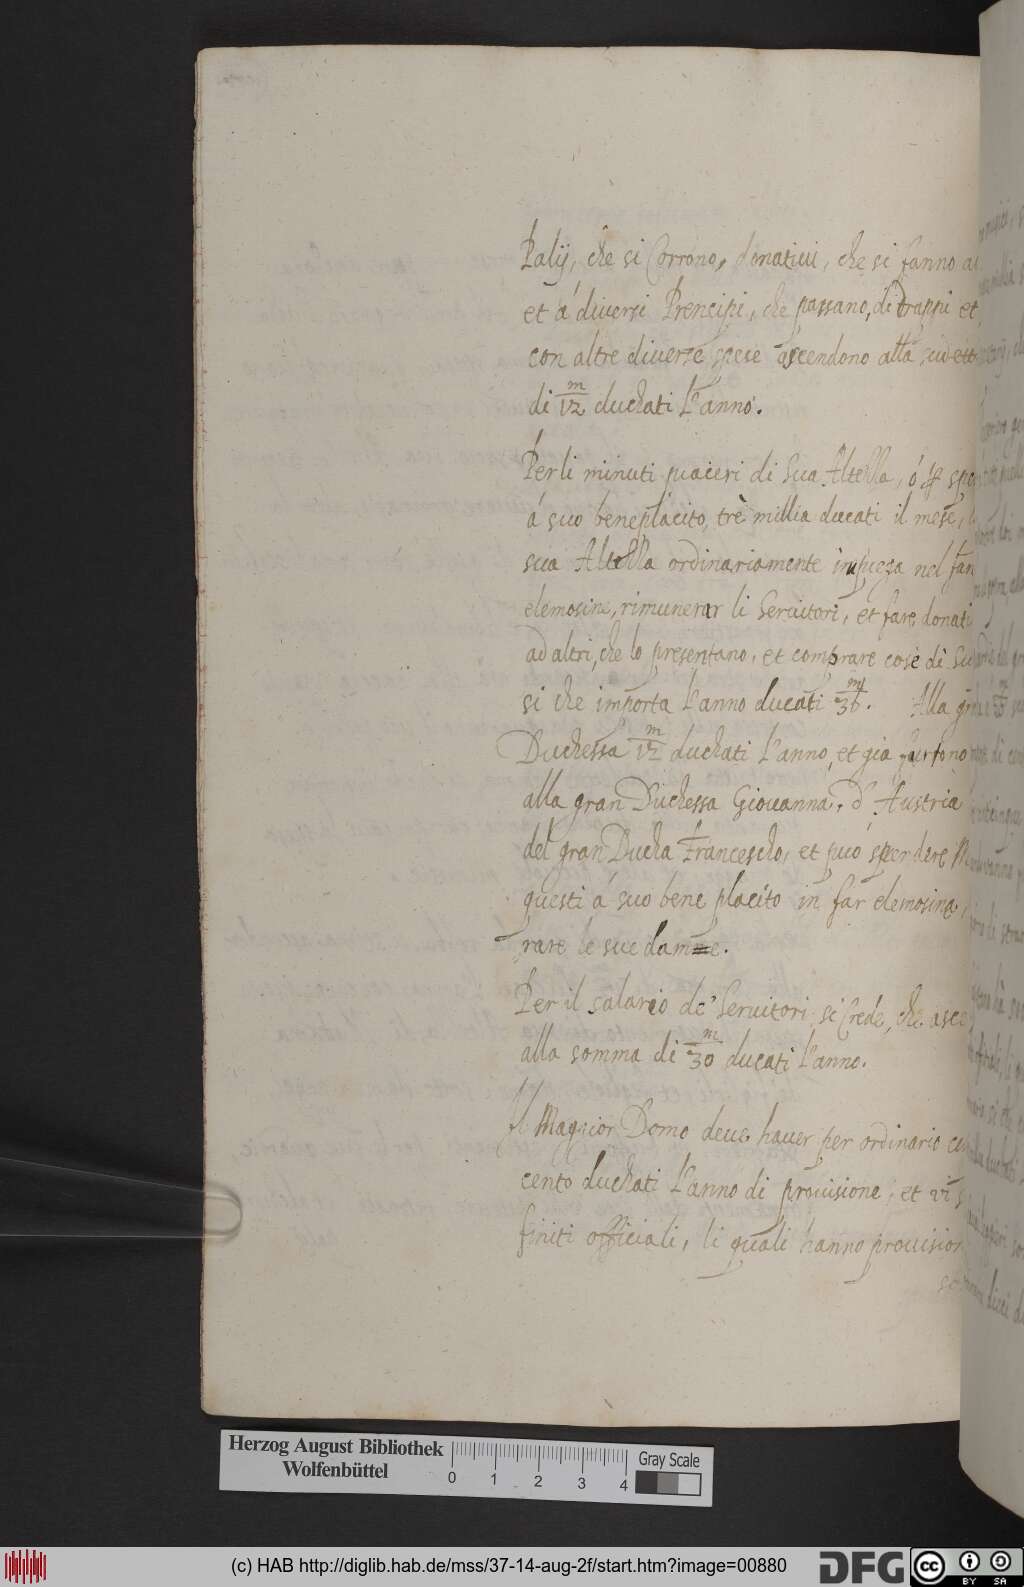 Palij, che si Corrono, donatiui, che si fanno a
et á diuersi Prencipi, che passano, di drappi et
con altre diuerse spese ascendono alla sudett
di m/12 duchati l'anno.
Per li minuti piaceri di Sua Altezza, ó per
á suo beneplacito, trè millia ducati il mese,
sua Altezza ordinariamente impiega nel far
elemosine, rimunerar li Seruitori, et fare donati
ad altri, che lo presentano, et comprare cose di Su
si che importa l'anno ducati m/36. Alla gr
Duchessa m/12 duchati l'anno, et gia furono
alla gran Duchessa Giouanna, d'Austria
del gran Ducha Francescho, et può spendere
questi á suo bene placito in far elemosina
rare le sue damme.
Per il salario de' Seruitori si Crede, che asce
alla somma di m/30 ducati l'anno.
Il Maggior Domo deue hauer per ordinario
cento duchati l'anno di prouisione, et vi s
finiti officiali, li quali hanno prouision
Herzog August Bibliothek
Wolfenbüttel
0 1 2 3 4
Gray Scale
(c) HAB http://diglib.hab.de/mss/37-14-aug-2f/start.htm?image=00880
DFG
cc BY SA